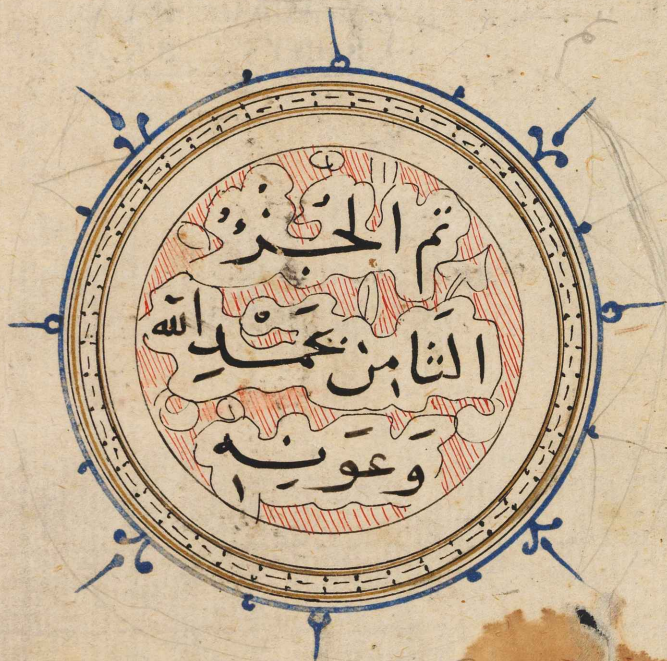 تم الجُزْءُ
الثَّامن بحَمْدِ الله
وَعَوَنِه